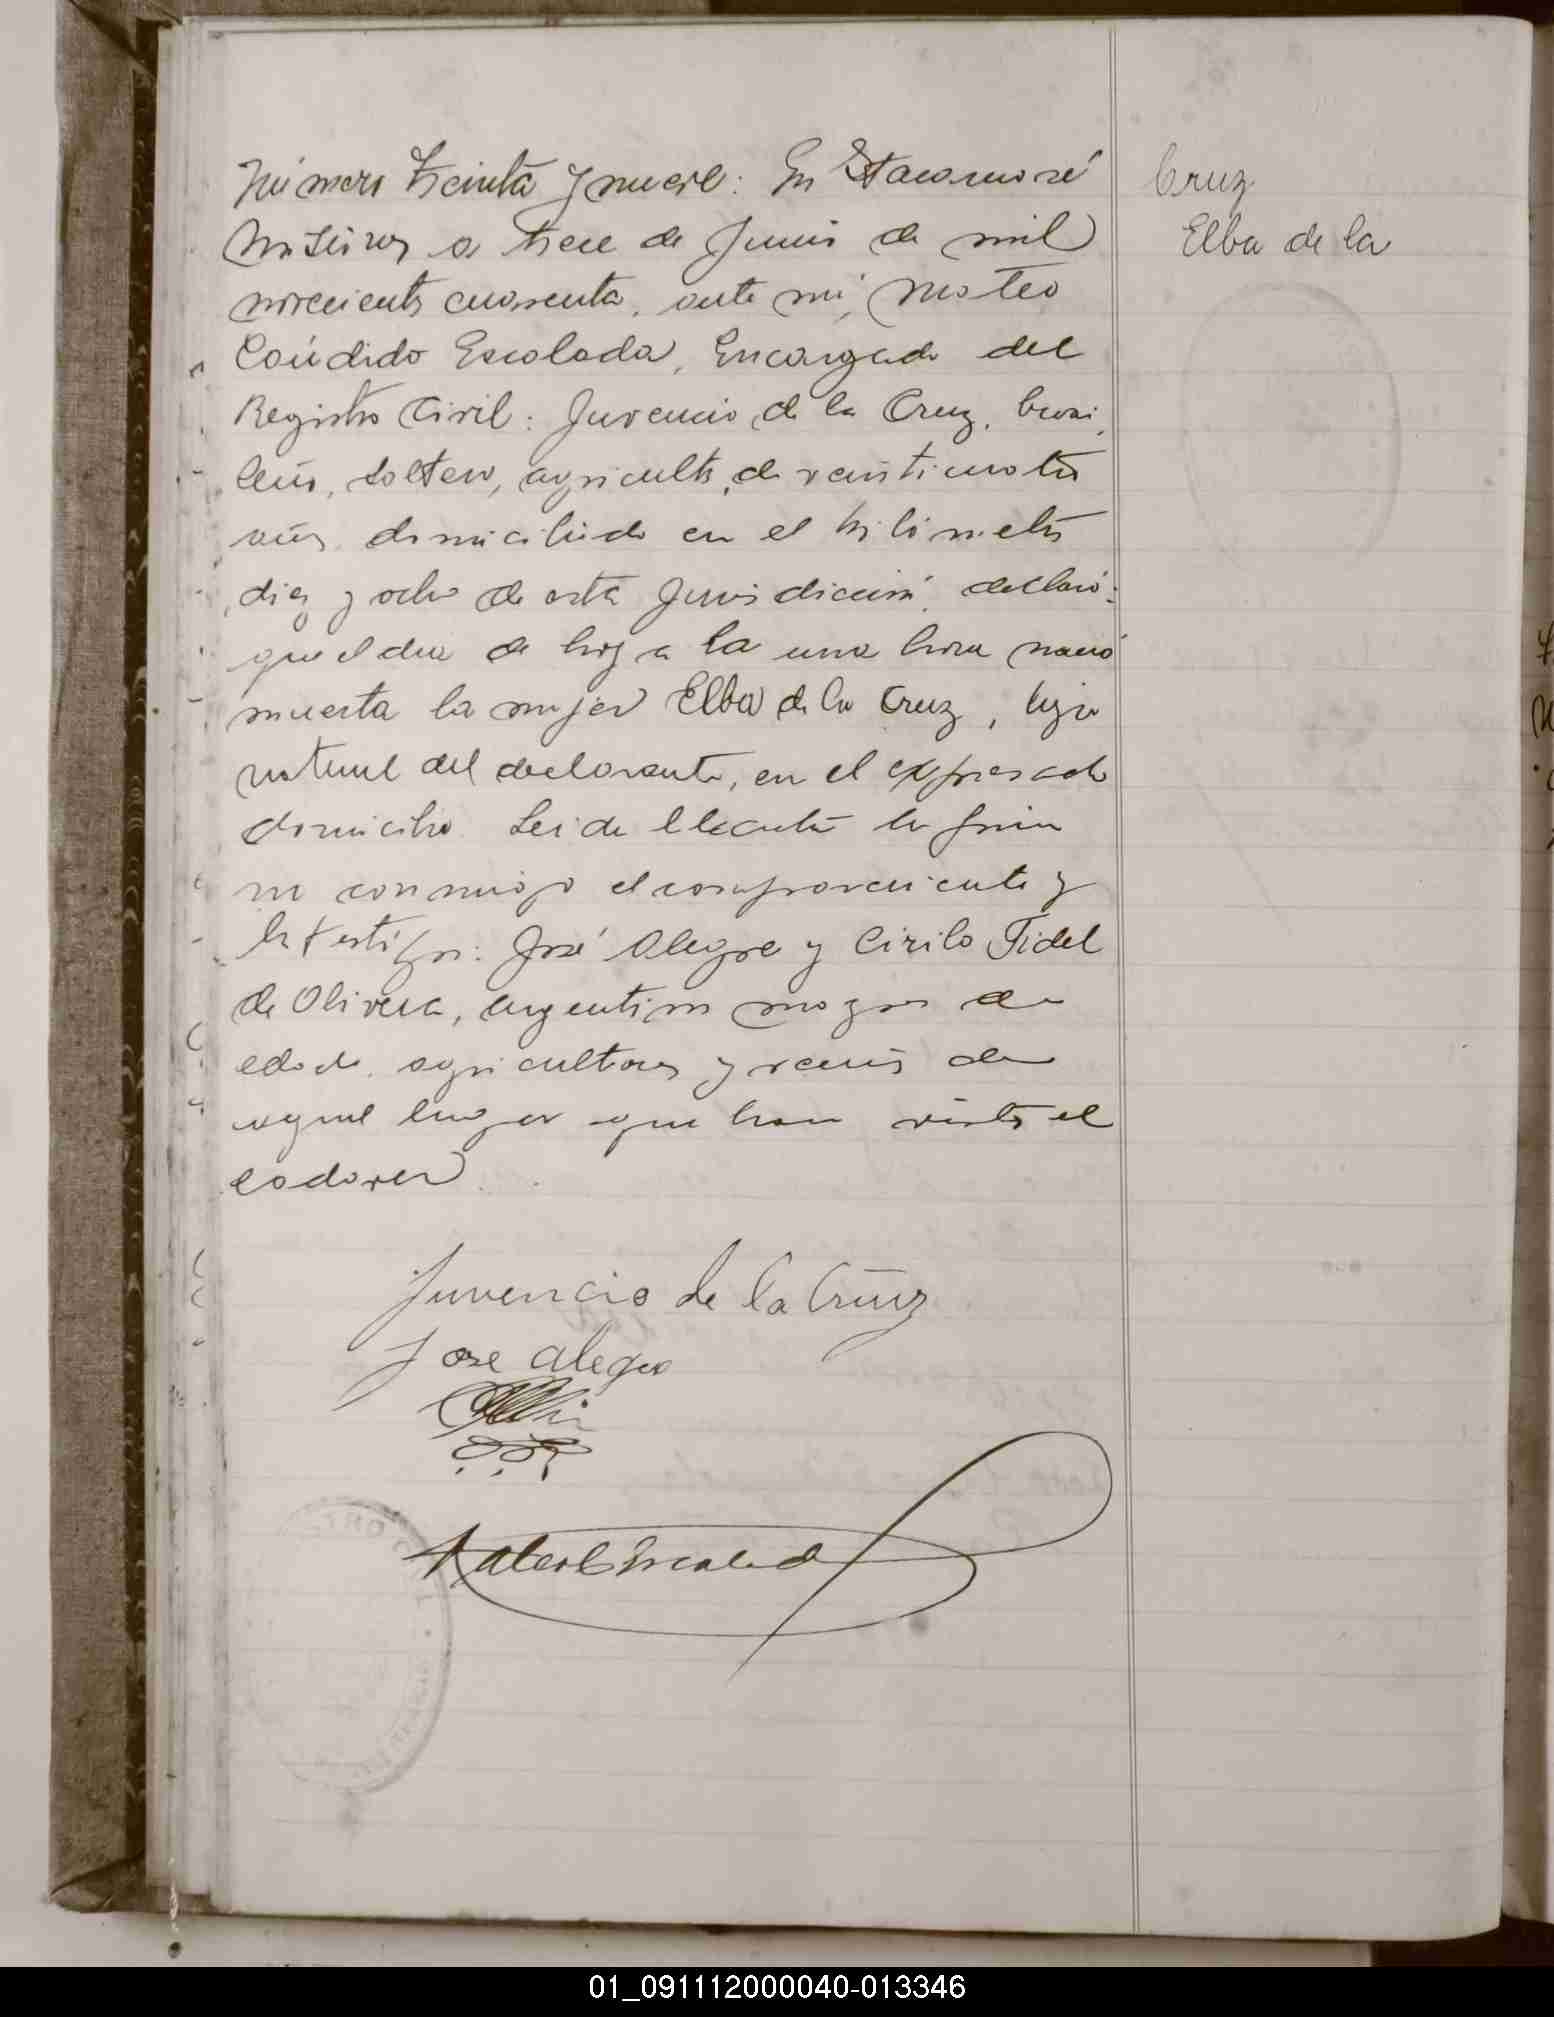 Número treinta y nueve: En Itacaruaré
Misiones a trece de Junio de mil
novecientos cuarenta, ante mí, Mateo
Cándido Escalada, Encargado del
Registro Civil: Juvencio de la Cruz, brasi
leño, soltero, agricultor, de veinticuatro
años, domiciliado en el kilómetro
diez y ocho de esta jurisdicción, declaró:
que el dia de hoy a la una hora nació
muerta la mujer Elba de la Cruz, hija
natural del declarante, en el expresado
domicilio. Leida el acta la firma
ron conmigo el compareciente y
los testigos: José Alegre y Cirilo Fidel
de Olivera, argentinos mayores de
edad, agricultores y vecinos de
aquel lugar que han visto el
cadaver.
Juvencio de la Cruz
Jose alegre
Mateo C Escalada
Cruz
Elba de la
01_091112000040-013346